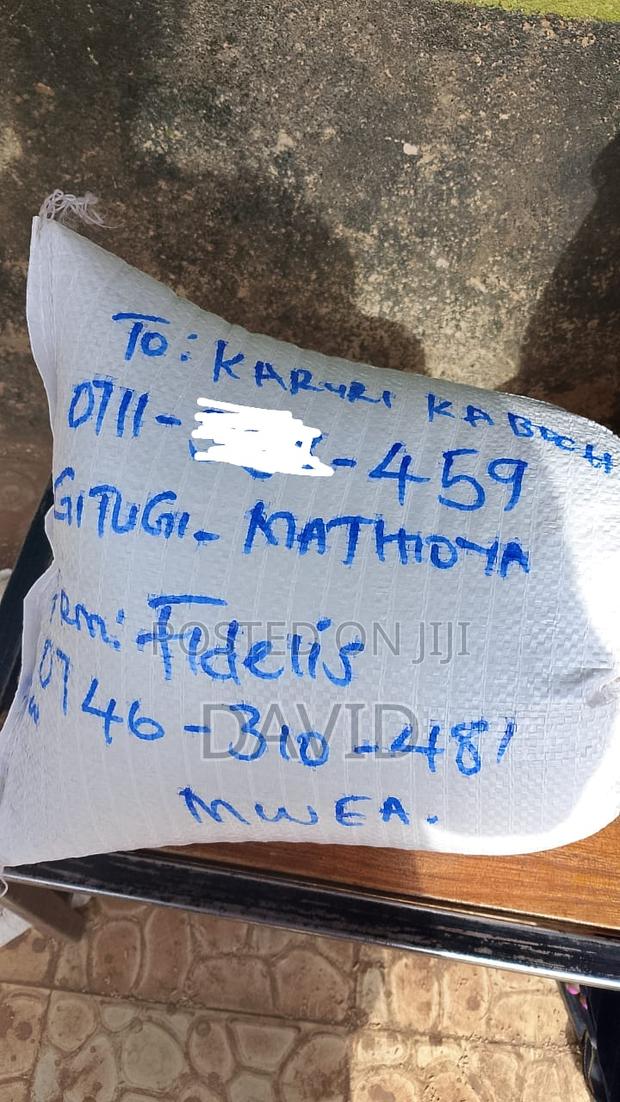 To: KARURI
0711- -459
GITUGI- MATHIOYA
From: Fidelis
POSTED ON JIJI
0746-310-481
DAVID
MWEA.